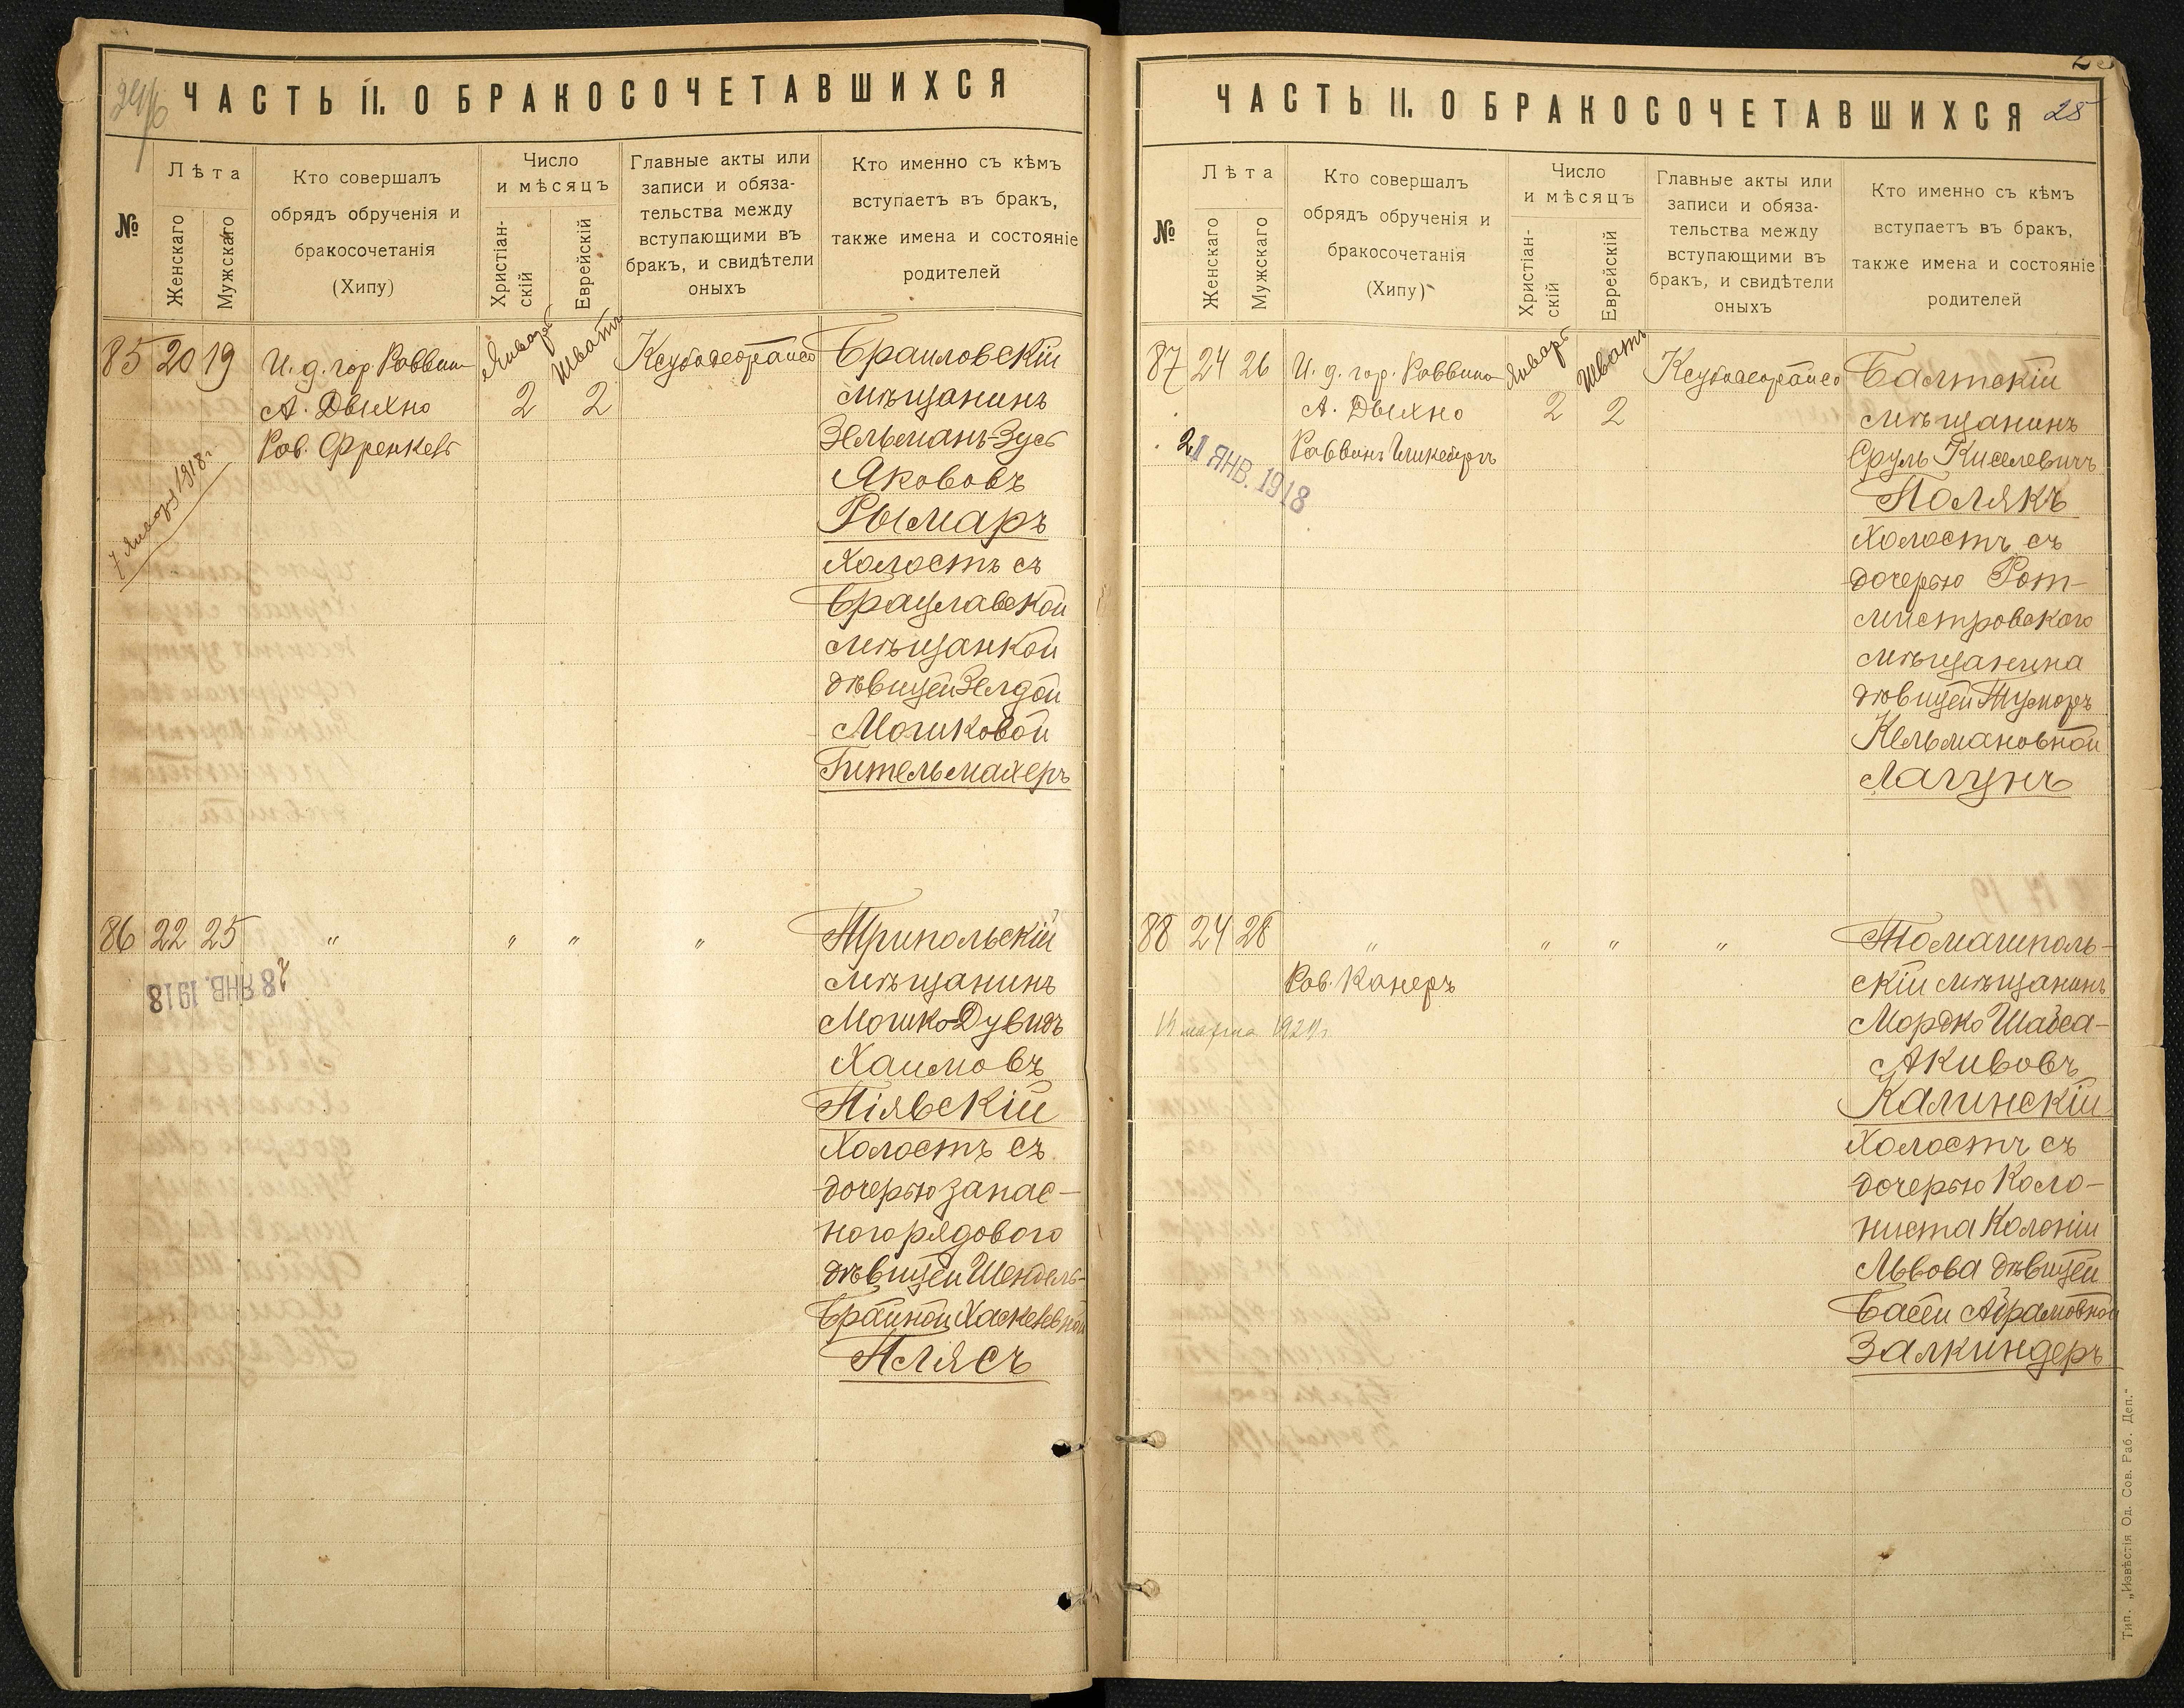 ЧАСТЬ II. О БРАКОСОЧЕТАВШИХСЯ
№
Лѣта
Женскаго
Мужскаго
Кто совершалъ
обрядъ обрученія и
бракосочетанія
(Хипу)
Число
и мѣсяцъ
Христіан-
скій
Еврейскій
Главные акты или
записи и обяза-
тельства между
вступающими въ
бракъ, и свидѣтели
оныхъ
Кто именно съ кѣмъ
вступаетъ въ бракъ,
также имена и состояніе
родителей
85 20 19
И. д. гор. Раввина
А. Дыхно
Рав. Френкель
Январь
2
Шватъ
2
7 Января 1918 г
Браиловскій
мѣщанинъ
Зельманъ-Зусь
Якововъ
Рымаръ
Холостъ съ
Брацлавской
мѣщанкой
дѣвицей Зелдой
Мошковой
Гительмахеръ
86 22 25
" " " "
28 ЯНВ. 1918
Трипольскій
мѣщанинъ
Мошко-Дувидъ
Хаимовъ
Піявскій
Холостъ съ
дочерью запас-
ного рядового
дѣвицей Шендель-
Брайной Хаскелевной
Плясъ
ЧАСТЬ II. О БРАКОСОЧЕТАВШИХСЯ
25
№
Лѣта
Женскаго
Мужскаго
Кто совершалъ
обрядъ обрученія и
бракосочетанія
(Хипу)
Число
и мѣсяцъ
Христіан-
скій
Еврейскій
Главные акты или
записи и обяза-
тельства между
вступающими въ
бракъ, и свидѣтели
оныхъ
Кто именно съ кѣмъ
вступаетъ въ бракъ,
также имена и состояніе
родителей
87 24 26
И. д. гор. Раввина
А. Дыхно
Раввинъ
Январь
2
Шватъ
2
21 ЯНВ. 1918
Балтскій
мѣщанинъ
Сруль Киселевичъ
Полякъ
Холостъ съ
дочерью Рот-
мистровского
мѣщанина
дѣвицей
Кельмановной
Лагунъ
88 24 28
" " " "
Рав. Канеръ
14 марта 192
Томашполь-
скій мѣщанинъ
Мордко Шабса-
Акивовъ
Калинскій
Холостъ съ
дочерью Коло-
ниста Колоніи
Львова дѣвицей
Басей Абрамовной
Залкиндеръ
Тип. „Извѣстія Од. Сов. Раб. Деп."